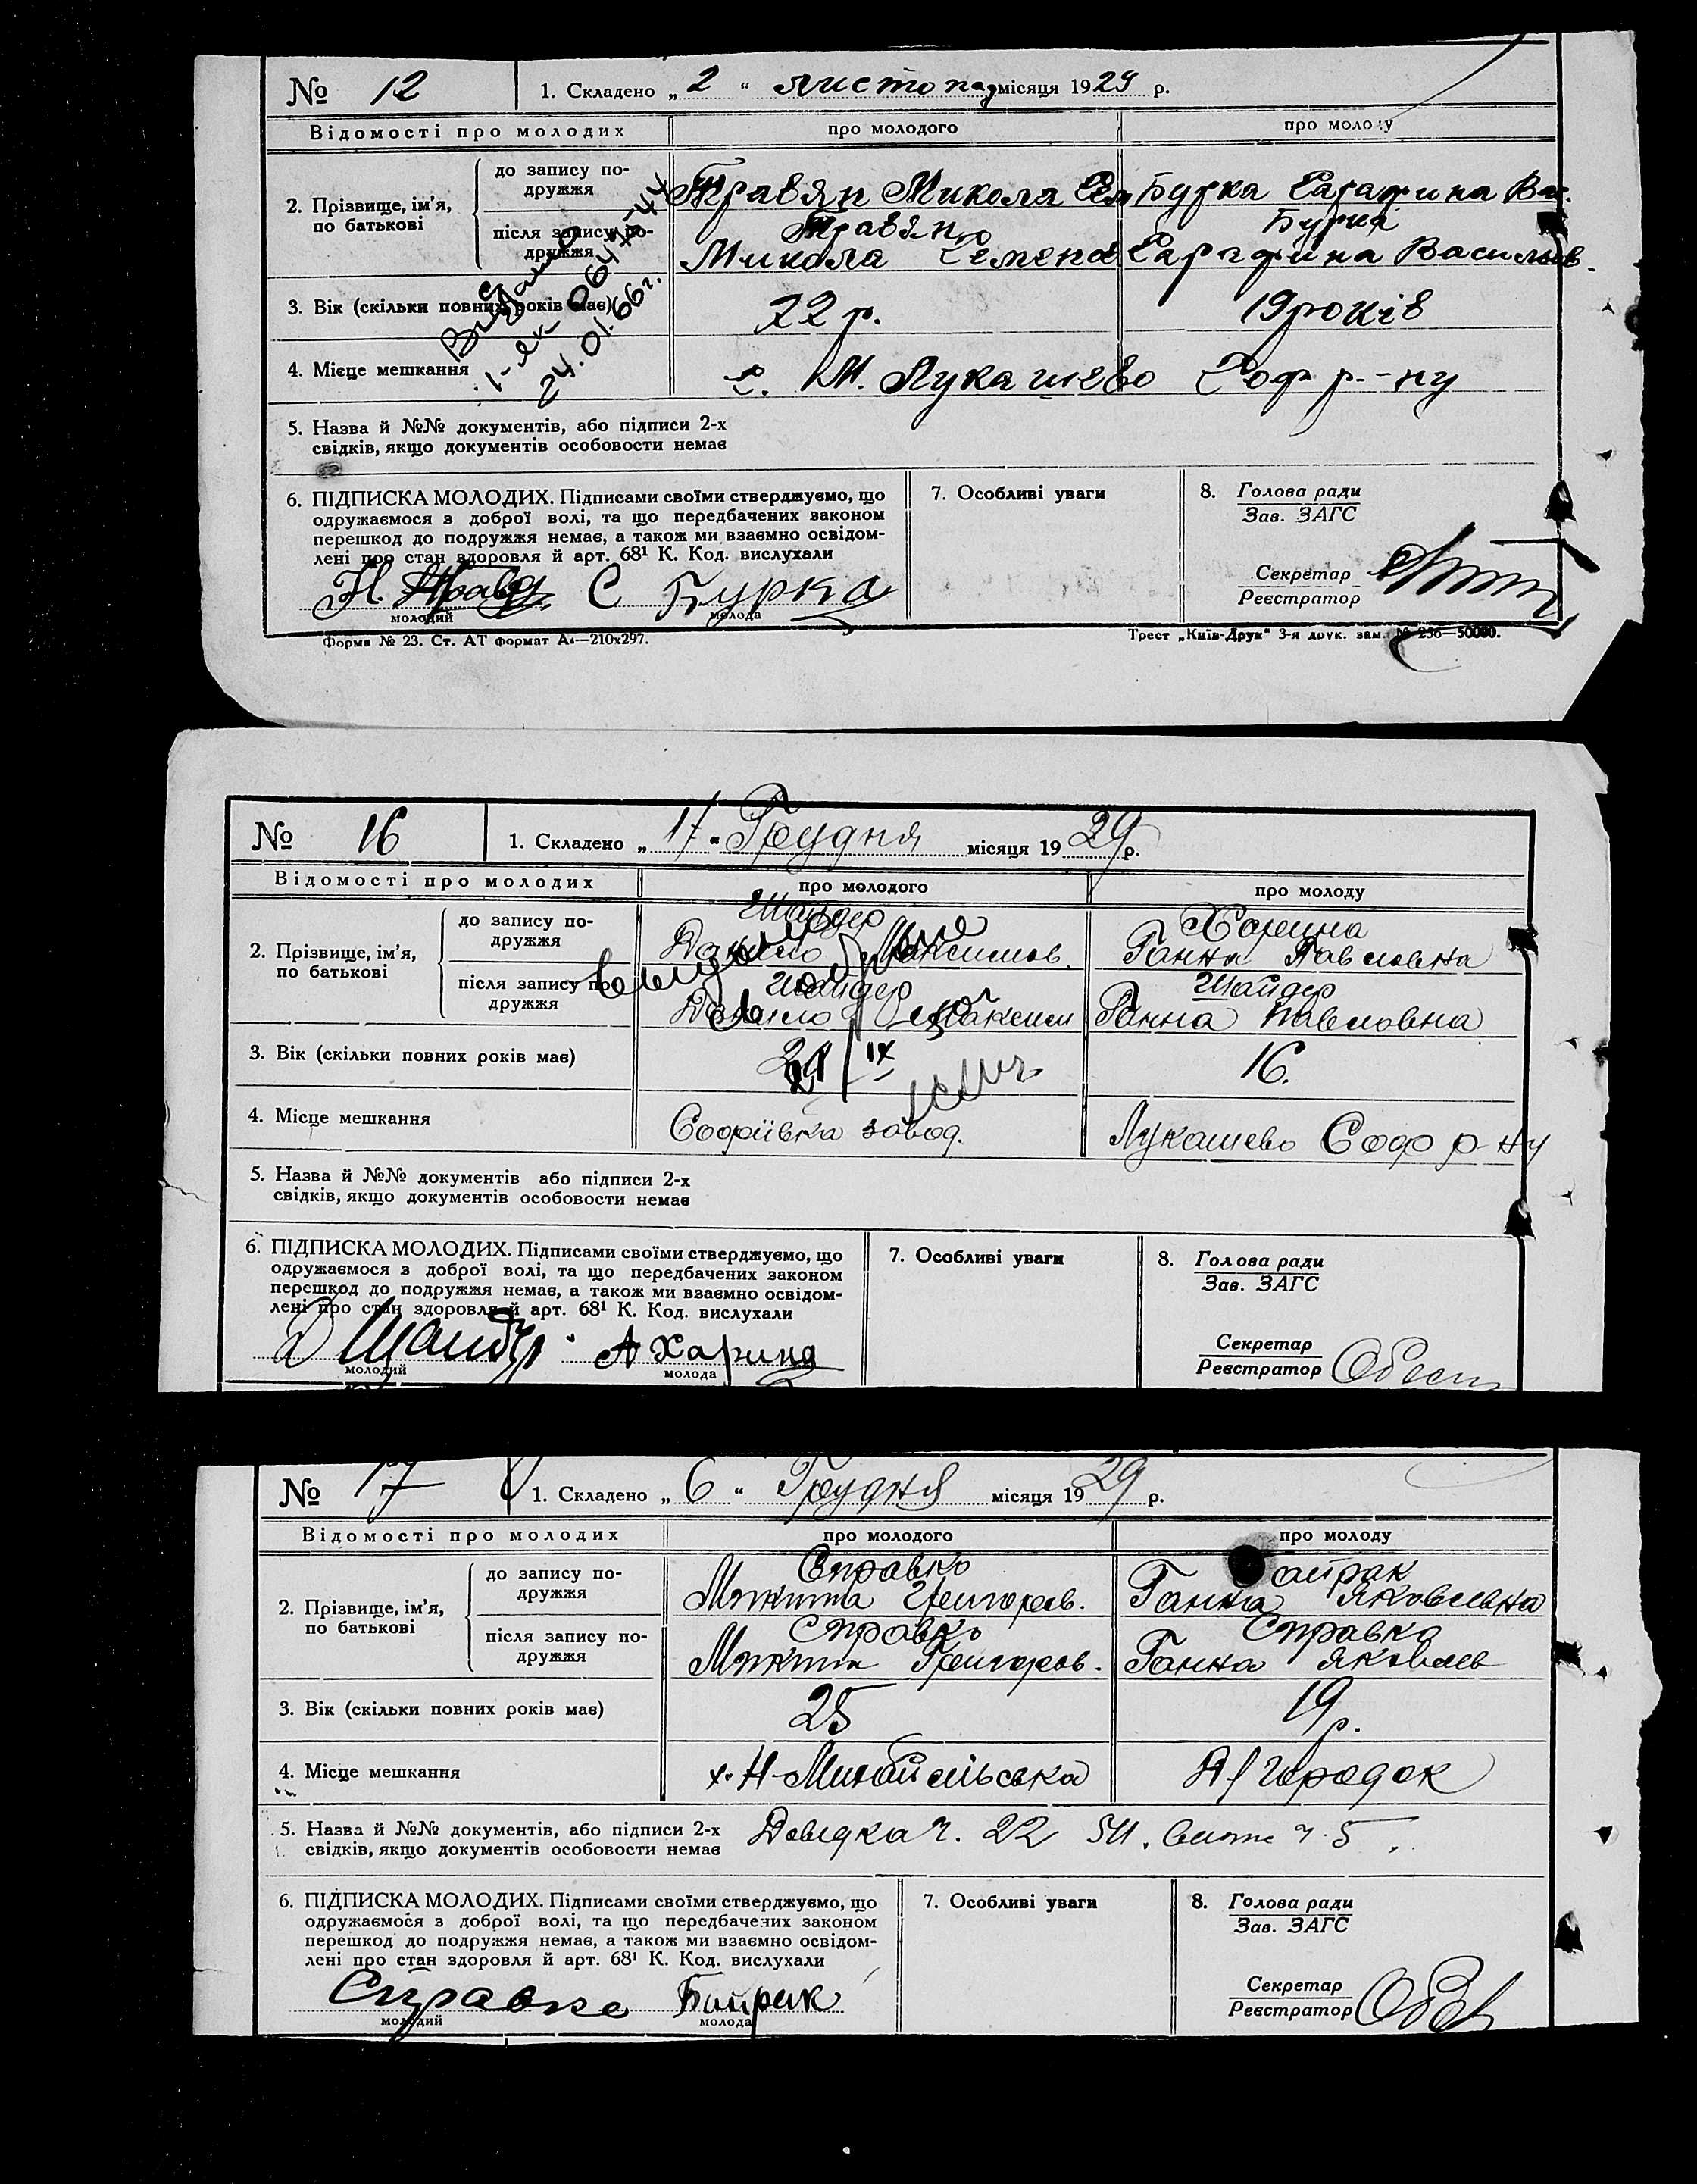 № 12 1. Складено „2“ листопад місяця 1929 р.
Відомості про молодих про молодого про молоду
2. Прізвище, ім’я, по батькові
до запису по-
дружжя
Травян Микола Сем Бурка Сарафина Вас.
після запису по-
дружжя
Травян Бурка
Микола Семенов Сарафина Васильов.
3. Вік (скільки повних років має) 22 р. 19 років
Видано
24.01.66 г.
4. Місце мешкання с. М. Лукашево Соф р-ну
5. Назва й №№ документів, або підписи 2-х
свідків, якщо документів особовости немає
6. ПІДПИСКА МОЛОДИХ. Підписами своїми стверджуємо, що
одружаємося з доброї волі, та що передбачених законом
перешкод до подружжя немає, а також ми взаємно освідом-
лені про стан здоровля й арт. 68¹ К. Код. вислухали
С Бурка
молодий молода
7. Особливі уваги
8. Голова ради
Зав. ЗАГС
Секретар
Реєстратор
Форма № 23. Ст. АТ формат А4—210х297. Трест „Київ-Друк“ 3-я друк. зам. № 256—50000.
№ 16 1. Складено „17“ Грудня місяця 1929 р.
Відомості про молодих про молодого про молоду
2. Прізвище, ім’я,
по батькові
до запису по-
дружжя
Шайдер Харина
Данило Максимов. Ганна Павловна
після запису по-
дружжя
Шайдер Шайдер
Данило Максим Ганна Павловна
3. Вік (скільки повних років має) 16.
4. Місце мешкання Софіївка завод. Лукашево Соф р ну
5. Назва й №№ документів або підписи 2-х
свідків, якщо документів особовости немає
6. ПІДПИСКА МОЛОДИХ. Підписами своїми стверджуємо, що
одружаємося з доброї волі, та що передбачених законом
перешкод до подружжя немає, а також ми взаємно освідом-
лені про стан здоровля й арт. 68¹ К. Код. вислухали
Д Шайдер А Харина
молодий молода
7. Особливі уваги
8. Голова ради
Зав. ЗАГС
Секретар
Реєстратор
№ 17 1. Складено „6“ Грудня місяця 1929 р.
Відомості про молодих про молодого про молоду
2. Прізвище, ім’я,
по батькові
до запису по-
дружжя
Справко айрак
Микита Григоров. Ганна Яковлевна
після запису по-
дружжя
Справко Справко
Микита Григоров. Ганна Яковлев
3. Вік (скільки повних років має) 25 19 р.
4. Місце мешкання х. Н- городок
5. Назва й №№ документів, або підписи 2-х
свідків, якщо документів особовости немає
Довідка ч. 22 ч. 5
6. ПІДПИСКА МОЛОДИХ. Підписами своїми стверджуємо, що
одружаємося з доброї волі, та що передбачених законом
перешкод до подружжя немає, а також ми взаємно освідом-
лені про стан здоровля й арт. 68¹ К. Код. вислухали
Справко Байрак
молодий молода
7. Особливі уваги
8. Голова ради
Зав. ЗАГС
Секретар
Реєстратор